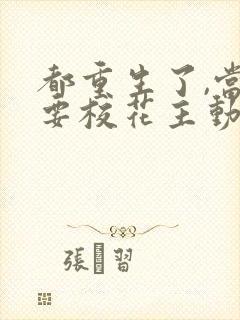 都重生了,當
要校花主動
張 習